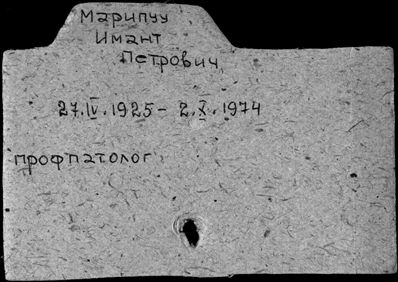 Марипуу
Имант
Петрович
27.IV.1925 - 2.X.1974
профпатолог